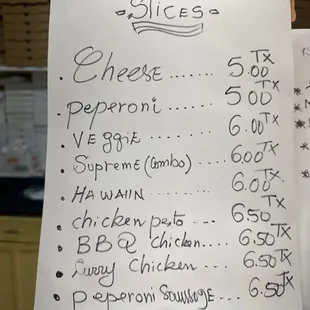 -SLICES-
. Cheese ....... 5.00 TX
. peperoni ...... 5 00 TX
. VEGGiE ....... 6.00 TX
. Supreme (Combo) .... 6.00 TX
. HAWAIIN ......... 6.00 TX
. chicken pesto --- 6 50 TX
. BBQ Chicken.... 6.50 TX
. Curry Chicken --- 6.50 TX
. peperoni Saussage... 6.50 TX